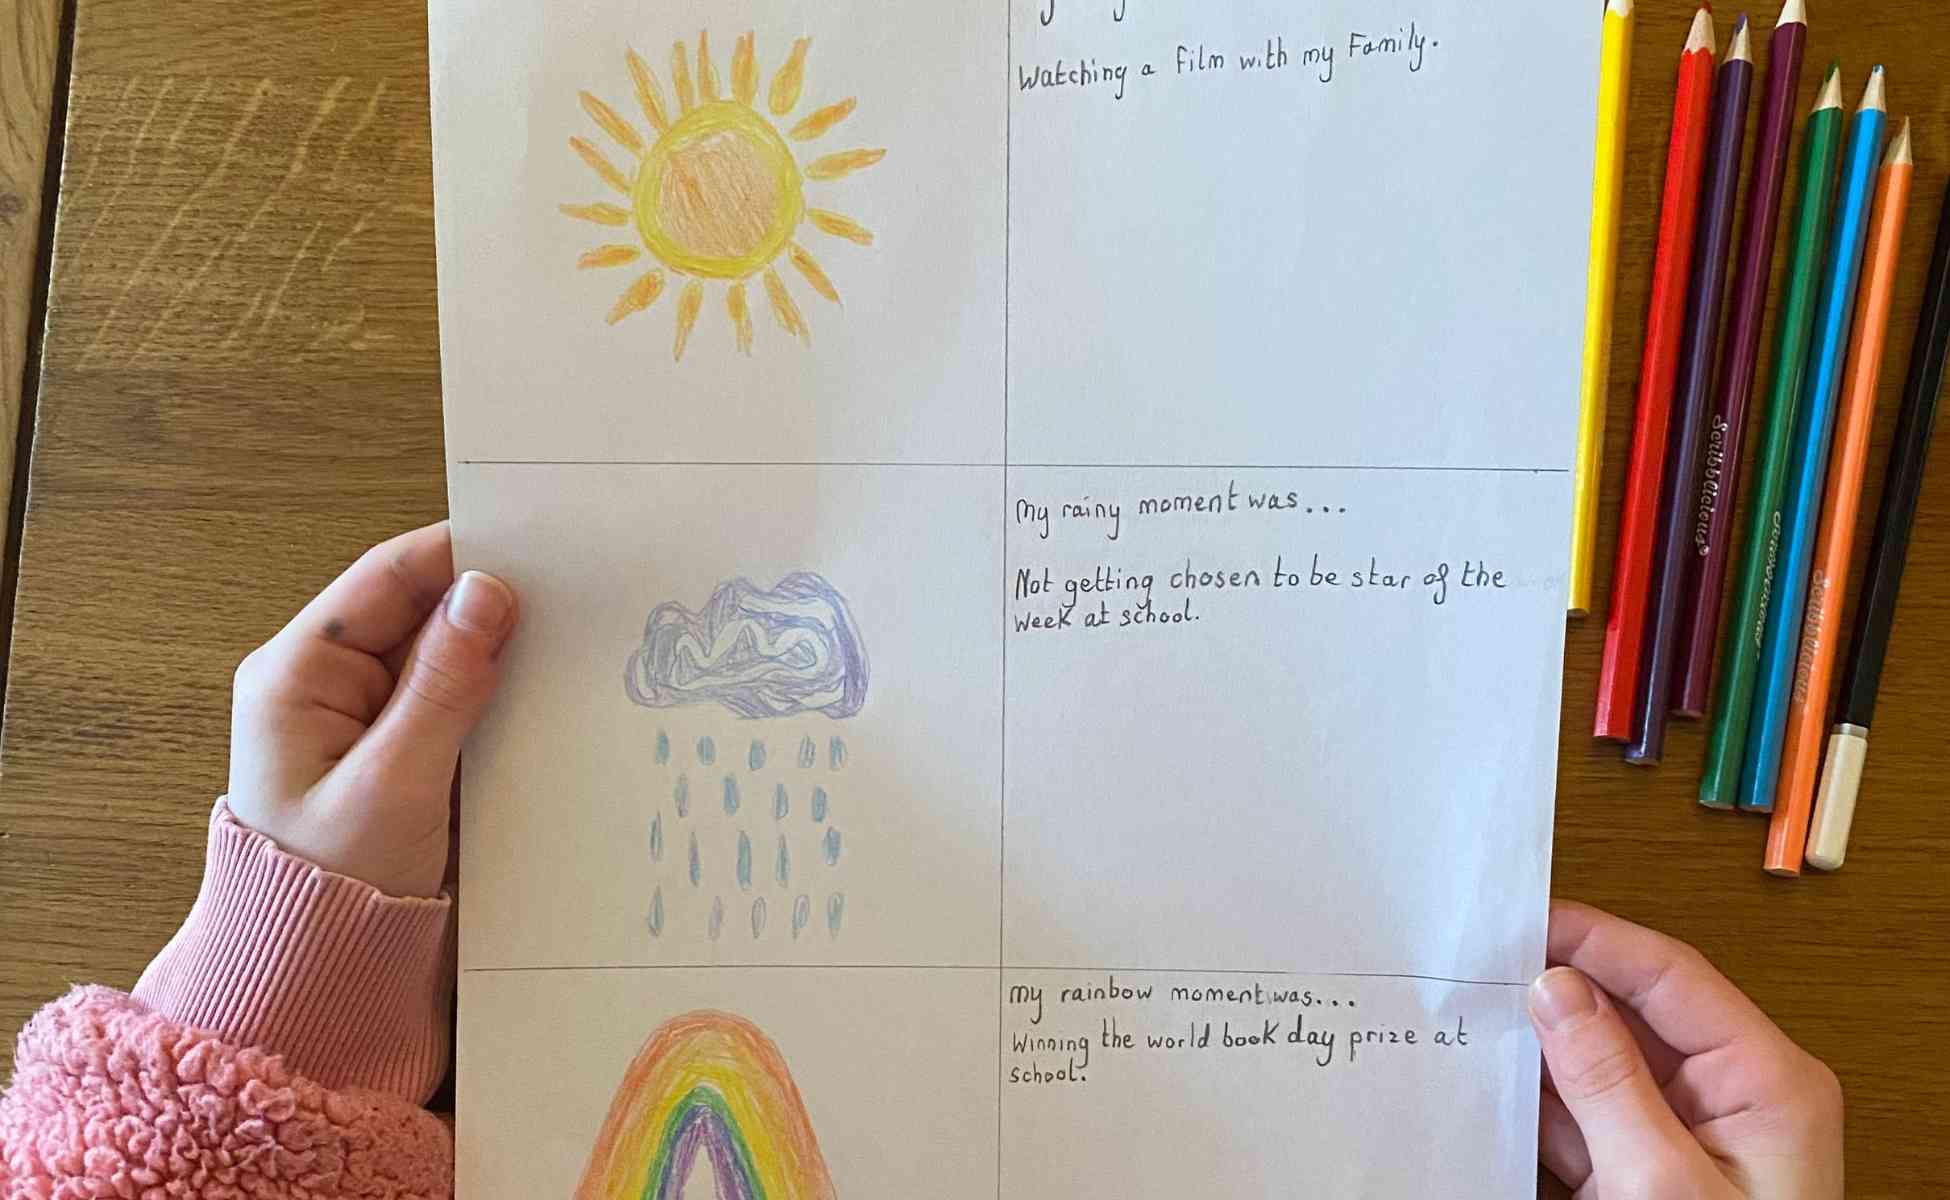 Watching a film with my Family.
My rainy moment was...
Not getting chosen to be star of the
week at school.
My rainbow moment was...
Winning the world book day prize at
school.
Scribblicious
Scribblicious